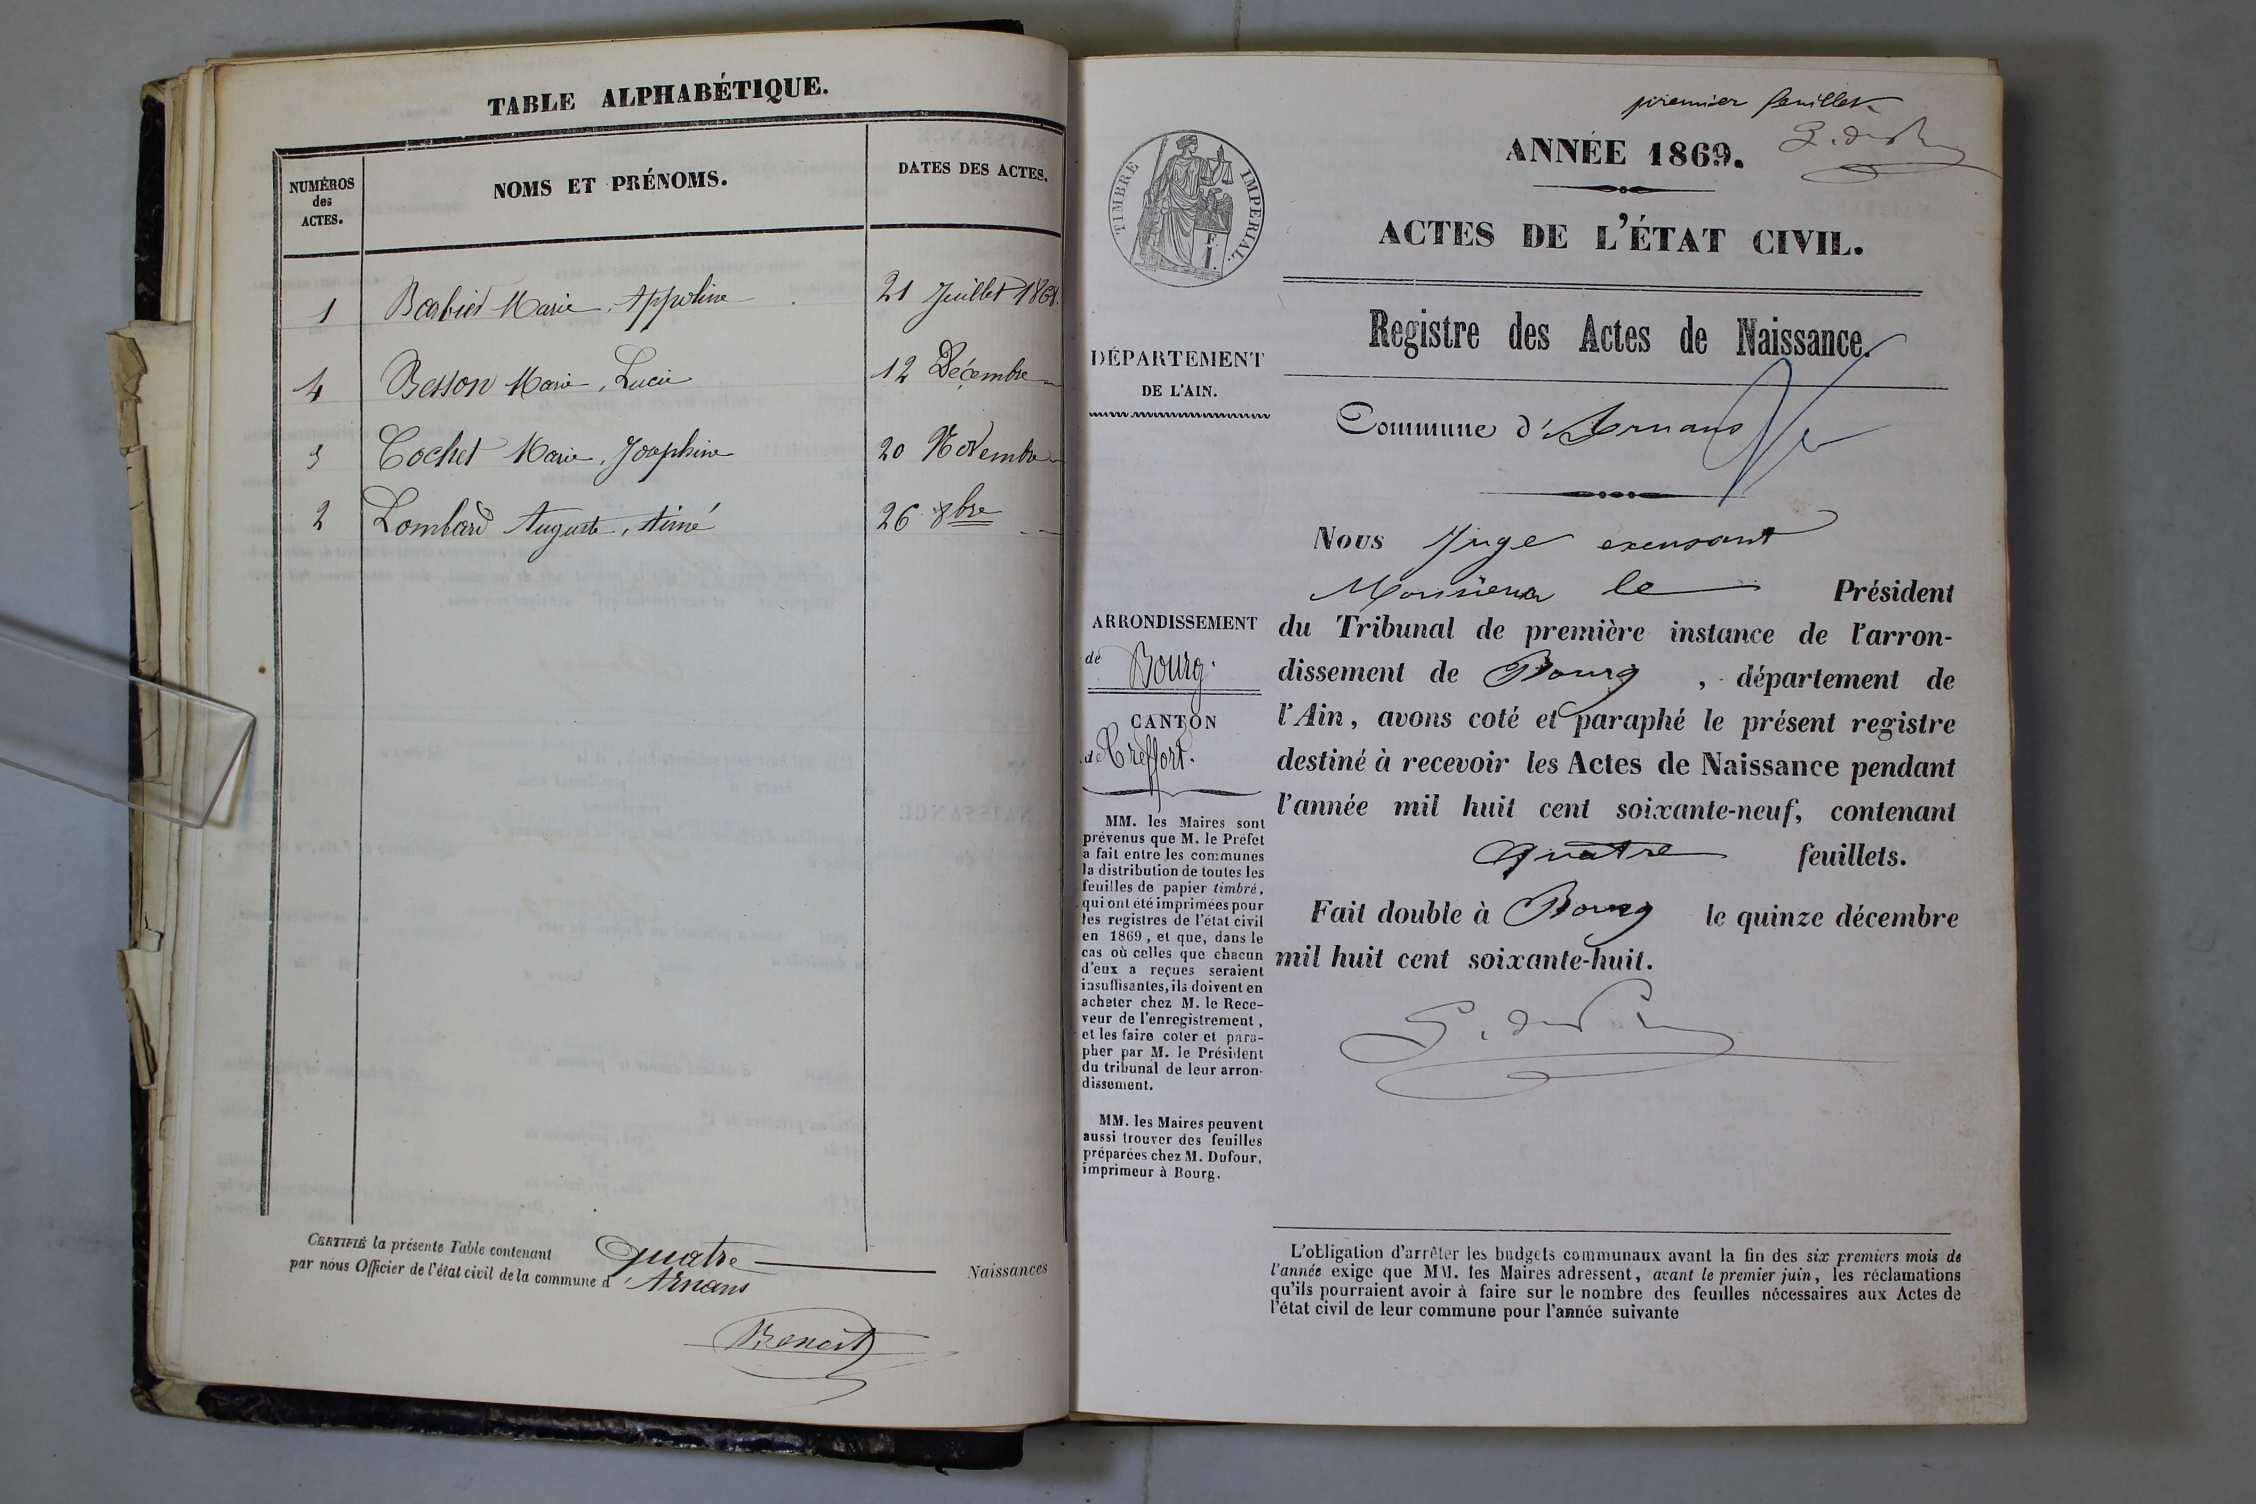 TABLE ALPHABÉTIQUE.
NUMÉROS
des
ACTES.
NOMS ET PRÉNOMS.
DATES DES ACTES.
1 Barbier Marie, Appoline 21 Juillet 1868.
4 Besson Marie, Lucie 12 Décembre
3 Cochet Marie, Joséphine 20 Novembre
2 Lombard Auguste, Aimé 26 8bre
CERTIFIÉ la présente Table contenant quatre Naissances
par nous Officier de l'état civil de la commune d'Arnans
Benoit
premier feuillet
TIMBRE IMPÉRIAL.
F.
1.
ANNÉE 1869.
ACTES DE L'ÉTAT CIVIL.
Registre des Actes de Naissance.
DÉPARTEMENT
DE L'AIN.
Commune d'Arnans
ARRONDISSEMENT
de Bourg.
CANTON
de Treffort.
MM. les Maires sont
prévenus que M. le Préfet
a fait entre les communes
la distribution de toutes les
feuilles de papier timbré,
qui ont été imprimées pour
les registres de l'état civil
en 1869, et que, dans le
cas où celles que chacun
d'eux a reçues seraient
insuffisantes, ils doivent en
acheter chez M. le Rece-
veur de l'enregistrement,
et les faire coter et para-
pher par M. le Président
du tribunal de leur arron-
dissement.
MM. les Maires peuvent
aussi trouver des feuilles
préparées chez M. Dufour,
imprimeur à Bourg.
Nous Juge excusant
Monsieur le Président
du Tribunal de première instance de l'arron-
dissement de Bourg, département de
l'Ain, avons coté et paraphé le présent registre
destiné à recevoir les Actes de Naissance pendant
l'année mil huit cent soixante-neuf, contenant
quatre feuillets.
Fait double à Bourg le quinze décembre
mil huit cent soixante-huit.
L'obligation d'arrêter les budgets communaux avant la fin des six premiers mois de
l'année exige que MM. les Maires adressent, avant le premier juin, les réclamations
qu'ils pourraient avoir à faire sur le nombre des feuilles nécessaires aux Actes de
l'état civil de leur commune pour l'année suivante